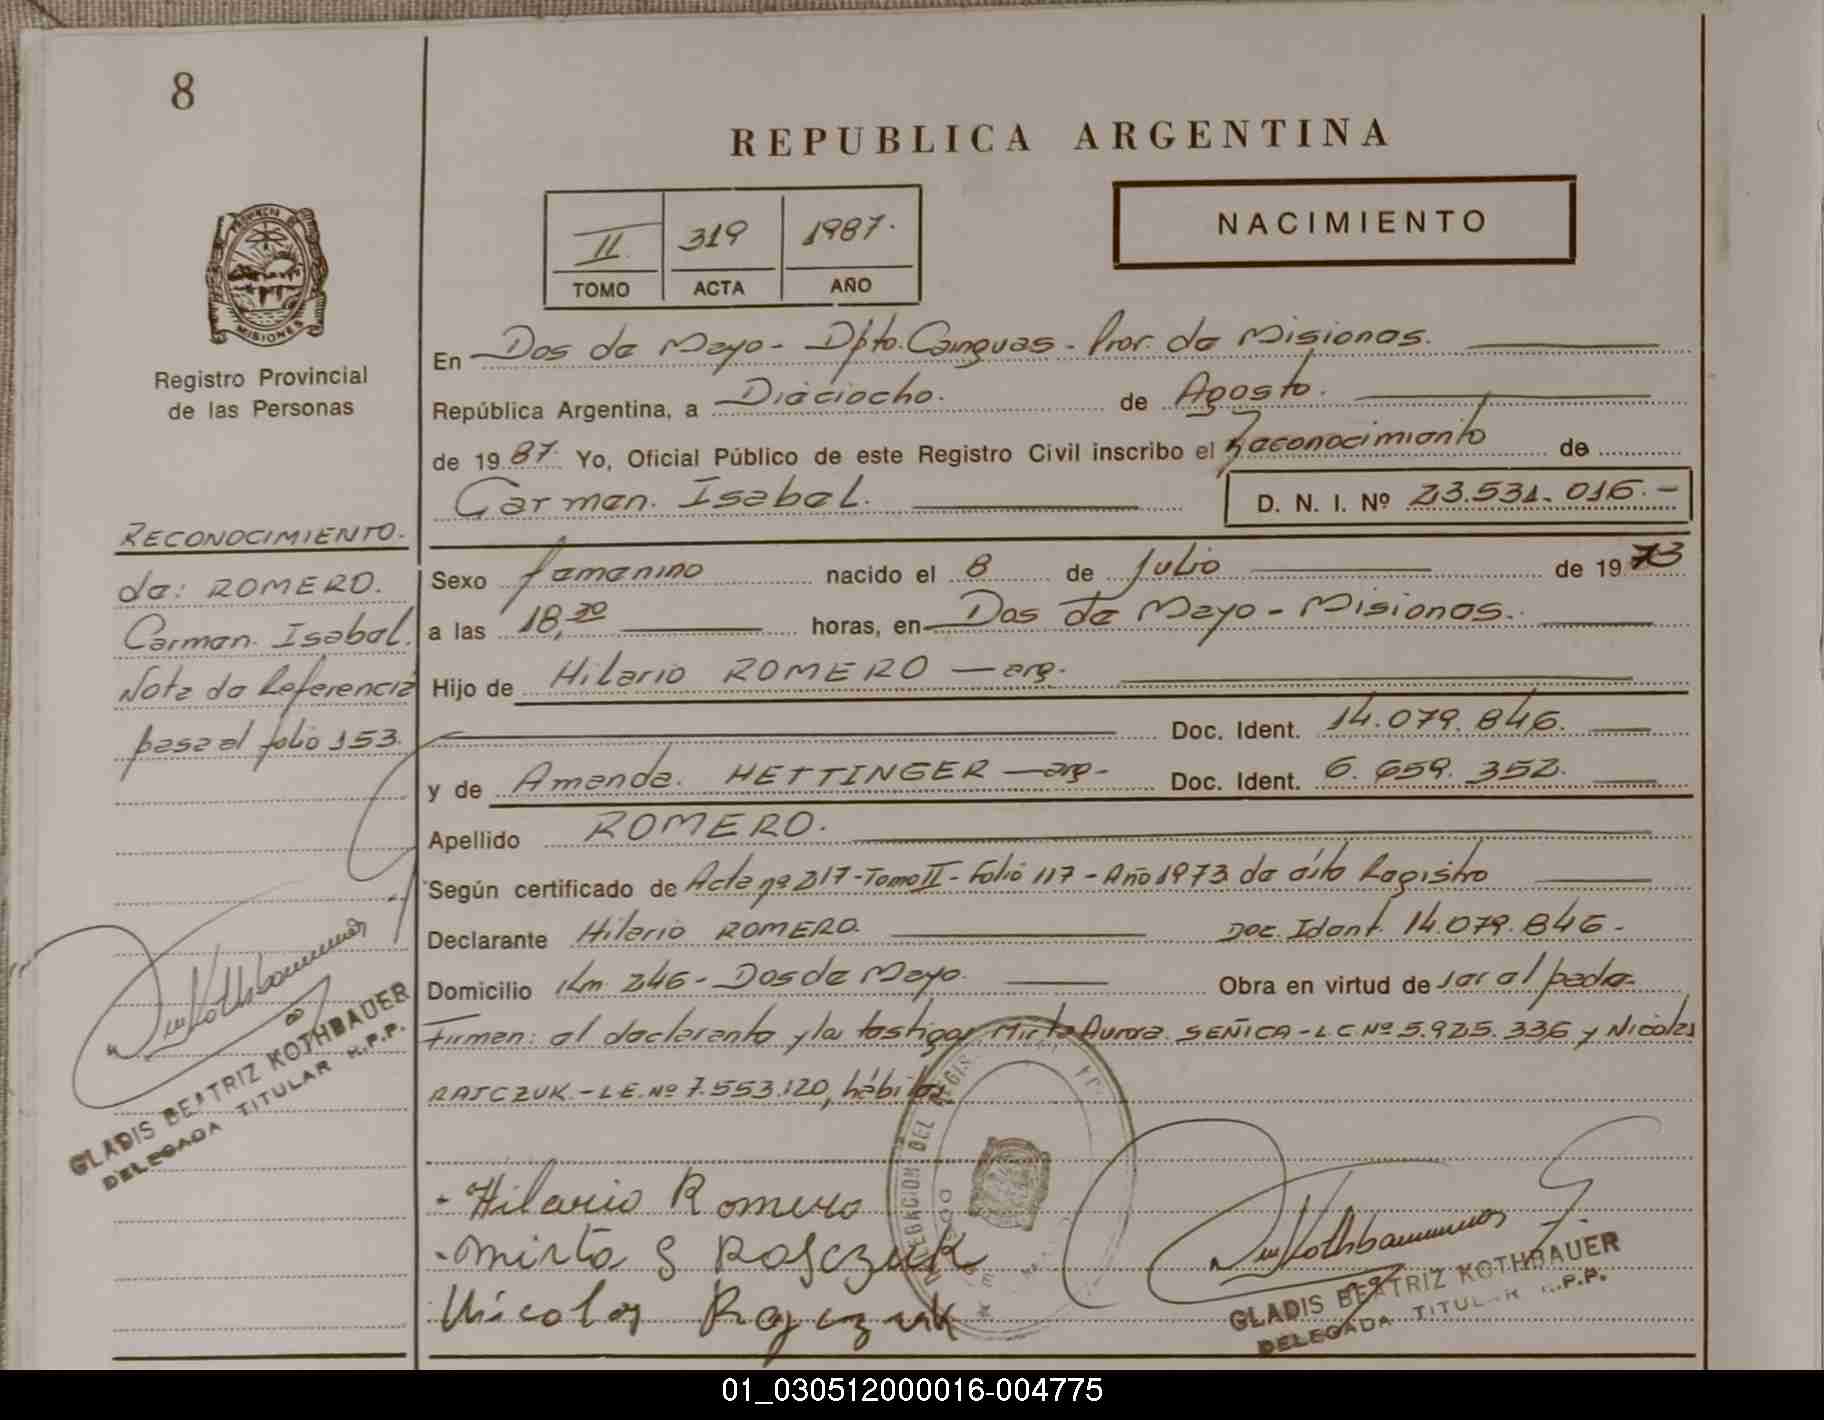 8
REPUBLICA ARGENTINA
NACIMIENTO
II 319 1987.
TOMO ACTA AÑO
PROVINCIA DE
MISIONES
Registro Provincial
de las Personas
En Dos de Mayo - Dpto. Cainguas - Prov. de Misiones.
República Argentina, a Dieciocho. de Agosto.
de 1987. Yo, Oficial Público de este Registro Civil inscribo el Reconocimiento de
Carmen. Isabel. D. N. I. Nº 23.531.016.-
RECONOCIMIENTO.
de: ROMERO.
Carmen. Isabel.
Nota de Referencia
pasa al folio 153.
Sexo femenino nacido el 8 de Julio de 1973
a las 18,30 horas, en Dos de Mayo - Misiones.
Hijo de Hilario ROMERO - arg.
Doc. Ident. 14.079.846.
y de Amanda. HETTINGER - arg- Doc. Ident. 6.659.352.
Apellido ROMERO.
Según certificado de Acta nº 217 - Tomo II - Folio 117 - Año 1973 de éste Registro
Declarante Hilario ROMERO. Doc. Ident. 14.079.846-
Domicilio Km 246 - Dos de Mayo. Obra en virtud de ser el padre.
Firman: el declarante y los testigos Mirta Aurora. SEÑICA - LC Nº 5.925.336 y Nicolas
RAJCZUK. - L.E. Nº 7.553.120, hábiles.
-Hilario Romero
-Mirta S Rajczuk
Nicolas Rajczuk
GLADIS BEATRIZ KOTHBAUER
DELEGADA TITULAR R.P.P.
GLADIS BEATRIZ KOTHBAUER
DELEGADA TITULAR R.P.P.
01_030512000016-004775